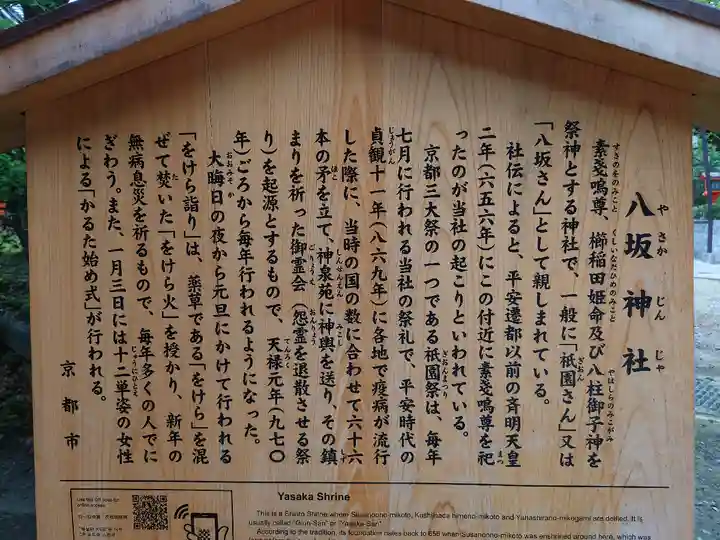 八坂神社
やさかじんじゃ
素戔嗚尊、櫛稲田姫命及び八柱御子神を
すさのをのみこと くしいなだひめのみこと やはしらのみこがみ
祭神とする神社で、一般に「祇園さん」又は
ぎおん
「八坂さん」として親しまれている。
社伝によると、平安遷都以前の斉明天皇
二年(六五六年)にこの付近に素戔嗚尊を祀
まつ
ったのが当社の起こりといわれている。
京都三大祭の一つである祇園祭は、毎年
ぎおんまつり
七月に行われる当社の祭礼で、平安時代の
貞観十一年(八六九年)に各地で疫病が流行
じょうがん
した際に、当時の国の数に合わせて六十六
本の矛を立て、神泉苑に神輿を送り、その鎮
ほこ しんせんえん みこし しず
まりを祈った御霊会(怨霊を退散させる祭
ごりょうえ おんりょう
り)を起源とするもので、天禄元年(九七〇
てんろく
年)ごろから毎年行われるようになった。
大晦日の夜から元旦にかけて行われる
おおみそか
「をけら詣り」は、薬草である「をけら」を混
ぜて焚いた「をけら火」を授かり、新年の
た
無病息災を祈るもので、毎年多くの人でに
ぎわう。また、一月三日には十二単姿の女性
じゅうにひとえ
による「かるた始め式」が行われる。
京都市
Yasaka Shrine
This is a Shinto Shrine where Susanono-mikoto, Kushiinada himeno-mikoto and Yahashirano-mikogami are deified. It is
usually called "Gion-San" or "Yasaka-San".
According to the tradition, its foundation dates back to 656 when Susanono-mikoto was enshrined around here, which was